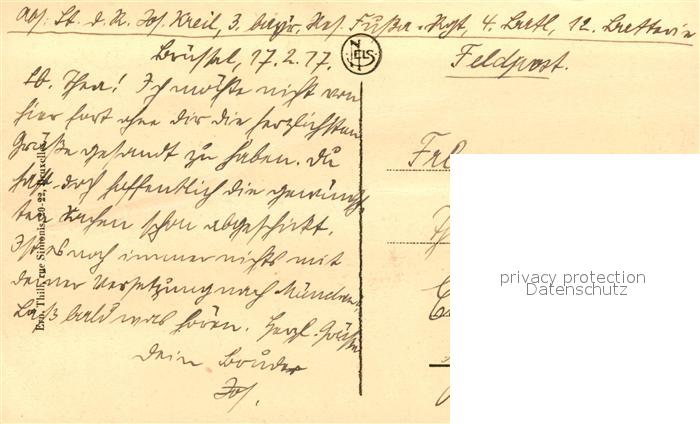 Abs: Lt. d. R. Jos. Kreil, 3. bayr. Res. Fußa. Rgt, 4. Batl, 12. Batterie
Brüssel, 17.2.17.
NELS
Feldpost.
Lb. Thea! Ich möchte nicht von
hier fort ohne dir die herzlichsten
Grüße gesandt zu haben. Du
hast doch hoffentlich die gewünsch-
ten Sachen schon abgeschickt.
Ist es noch immer nichts mit
deiner Versetzung nach München.
Laß bald was hören. Herzl. Grüße
Dein Bruder
Jos.
Ern. Thill, rue Simonis, 20-22, Bruxelles
Frl
privacy protection
Datenschutz